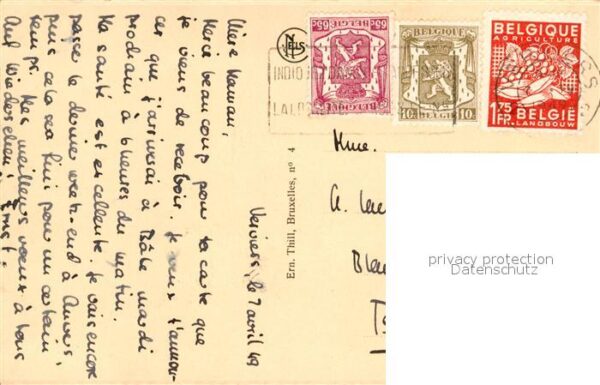 Verviers, le 7 avril 49
Chère Maman,
Merci beaucoup pour ta carte que
je viens de recevoir. Je veux t'annon-
cer que j'arriverai à Bâle mardi
prochain à 6 heures du matin.
Ma santé est excellente. Je vais encore
passer le dernier week-end à Anvers,
puis cela sera fini pour un certain
temps. Mes meilleurs vœux à tous
Auf Wiedersehen! Ernst.
NELS
Ern. Thill, Bruxelles, n° 4
65c BELGIE 65c
BELGIQUE
10c BELGIE 10c
BELGIQUE
AGRICULTURE
1.75 FR. BELGIE
LANDBOUW
INDI
LA L
Mme.
A.
privacy protection
Datenschutz